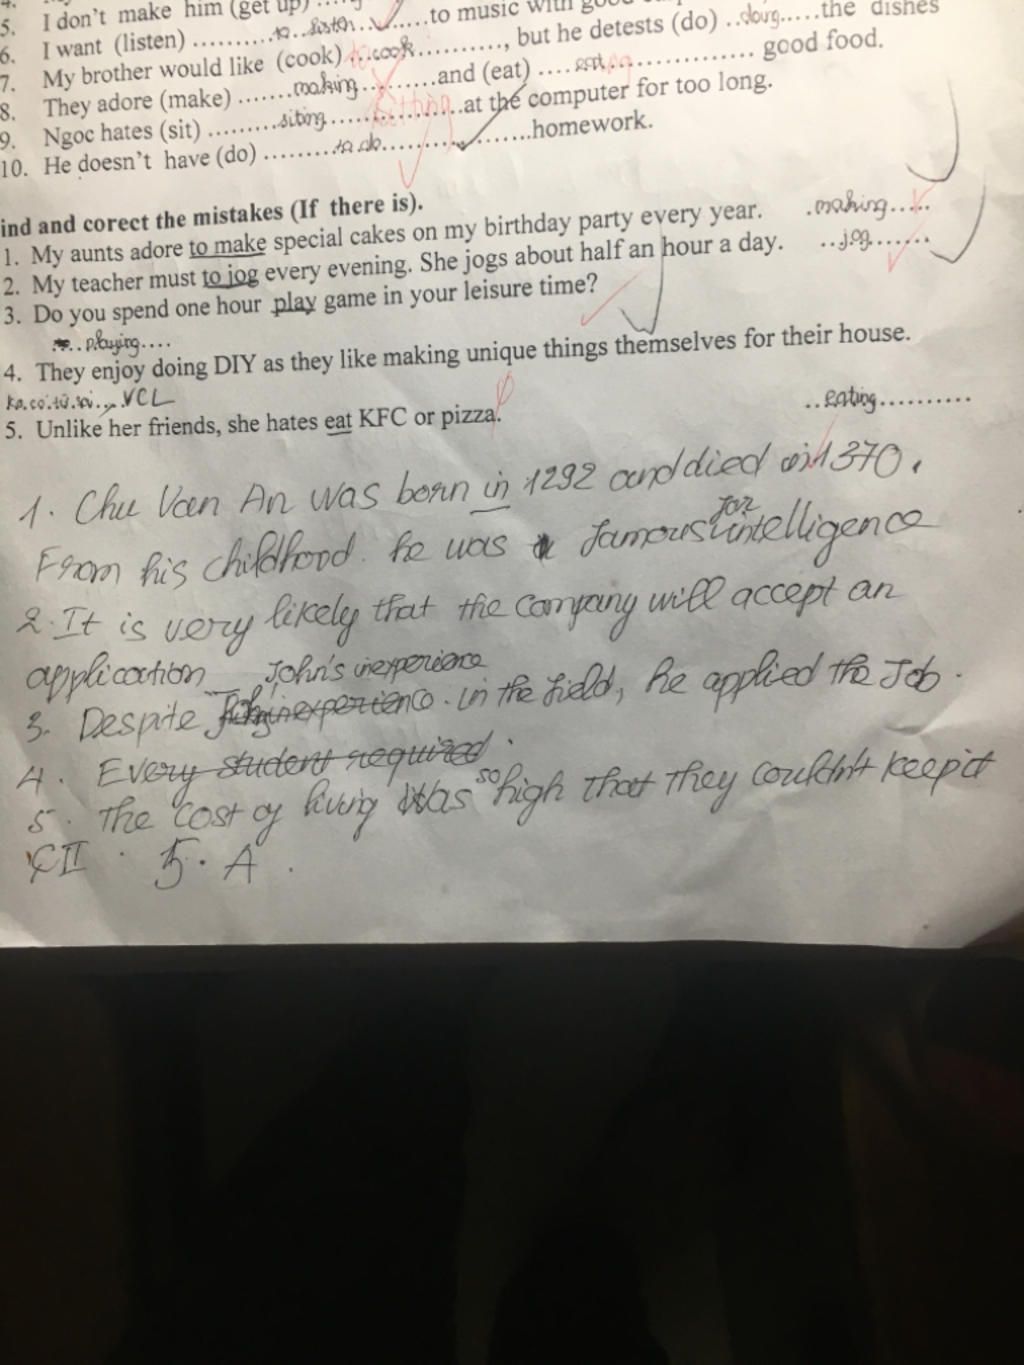 5. I don't make him (get up)
6. I want (listen) ..........to listen..........to music with
7. My brother would like (cook) to cook.........., but he detests (do) ..doing.....the dishes
8. They adore (make) .......making..........and (eat) ....eating................. good food.
9. Ngoc hates (sit) .........siting..... sitting..at the computer for too long.
10. He doesn't have (do) .........to do.................homework.
ind and corect the mistakes (If there is).
1. My aunts adore to make special cakes on my birthday party every year. .making.....
2. My teacher must to jog every evening. She jogs about half an hour a day. ..jog......
3. Do you spend one hour play game in your leisure time?
..playing....
4. They enjoy doing DIY as they like making unique things themselves for their house.
VCL
5. Unlike her friends, she hates eat KFC or pizza. ..eating..........
1. Chu Van An was born in 1292 and died in 1370.
From his childhood. he was famous for intelligence
2. It is very likely that the company will accept an
application
3. Despite John's inexperience in the field, he applied the Job.
4. Every student required.
5. The cost of living was so high that they couldn't keep it
CII. 5. A.